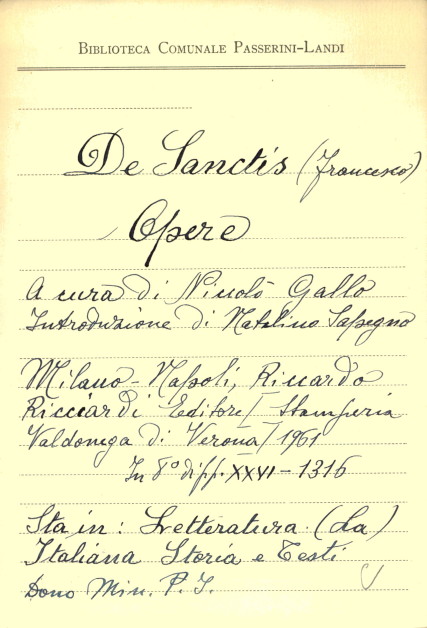 BIBLIOTECA COMUNALE PASSERINI-LANDI
De Sanctis (Francesco)
Opere
A cura di Niccolò Gallo
Introduzione di Natalino Sapegno
Milano - Napoli, Riccardo
Ricciardi Editore / Stamperia
Valdonega di Verona / 1961
In 8° di pp. XXVI - 1316
Sta in: Letteratura (La)
Italiana Storia e Testi
Dono Min. P. I.